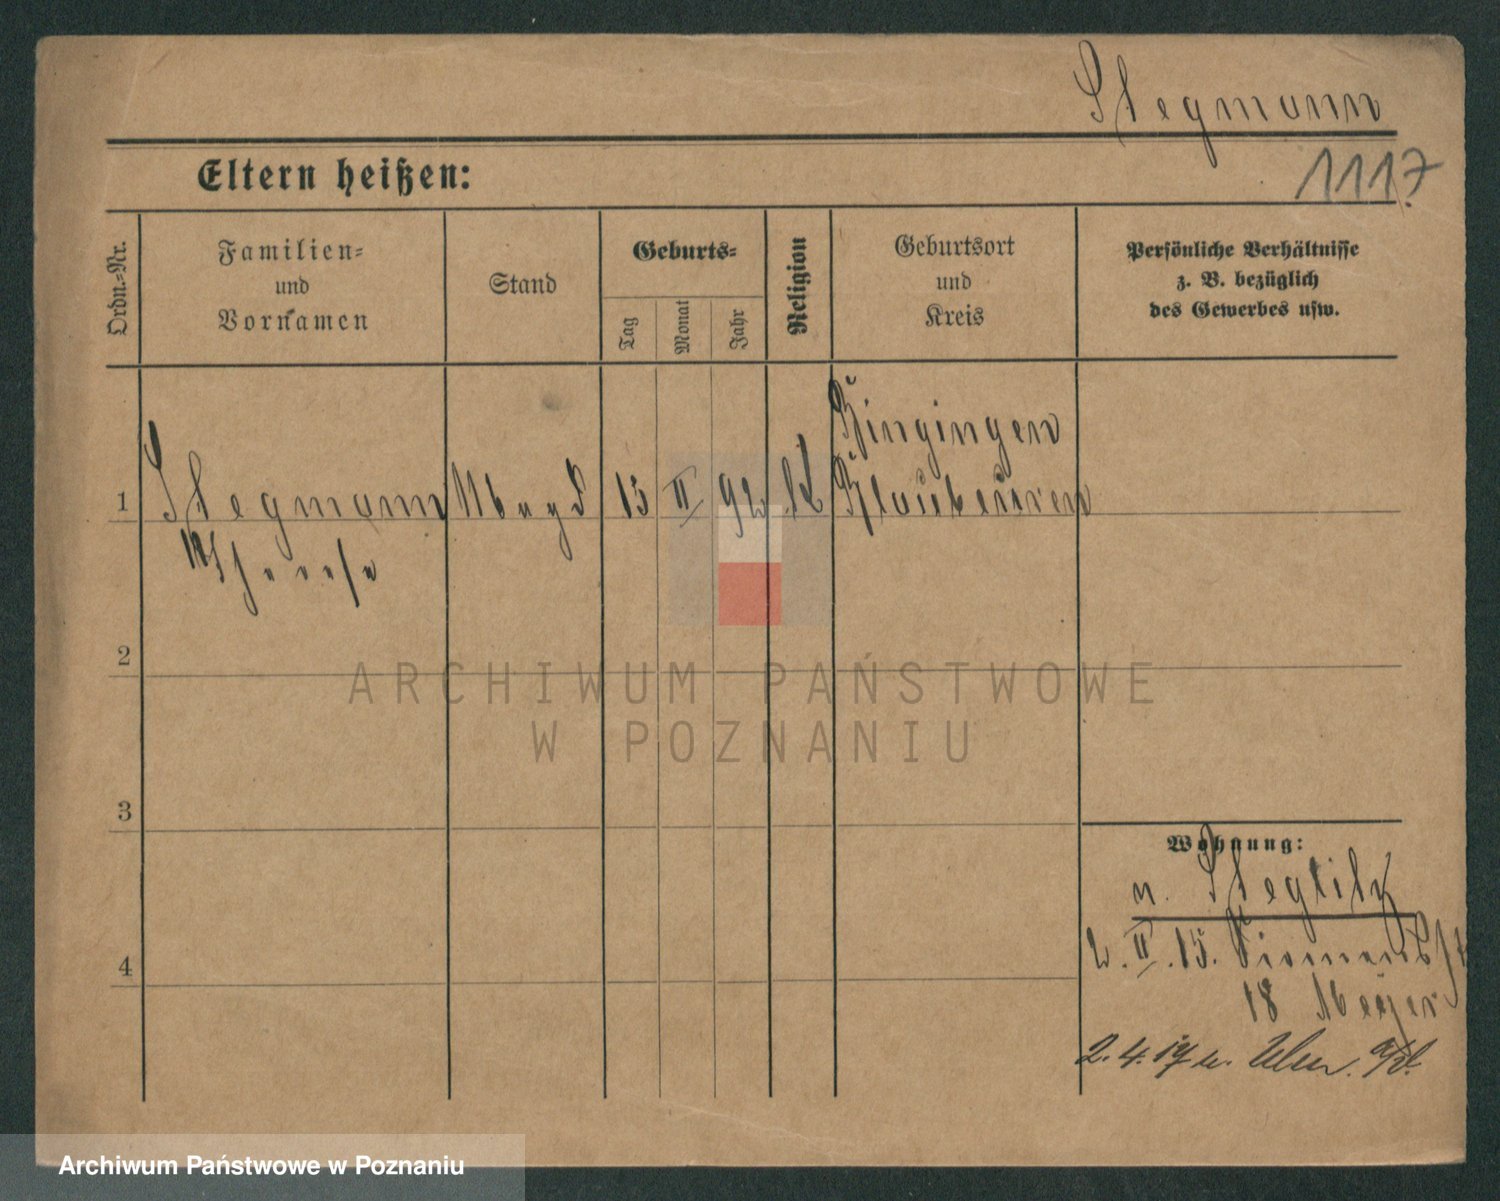 Stegmann
1117
Eltern heißen:
Ordn.-Nr.
Familien-
und
Vornamen
Stand
Geburts-
Tag
Monat
Jahr
Religion
Geburtsort
und
Kreis
Persönliche Verhältnisse
z. B. bezüglich
des Gewerbes usw.
1
Stegmann
Therese
Magd
15
II
92
k
Bingingen
Blaubeuren
2
3
4
Wohnung:
n. Steglitz
2. II. 15.
18 Meyer
2. 4. 17 n. Ulm. a/d.
ARCHIWUM PAŃSTWOWE
W POZNANIU
Archiwum Państwowe w Poznaniu